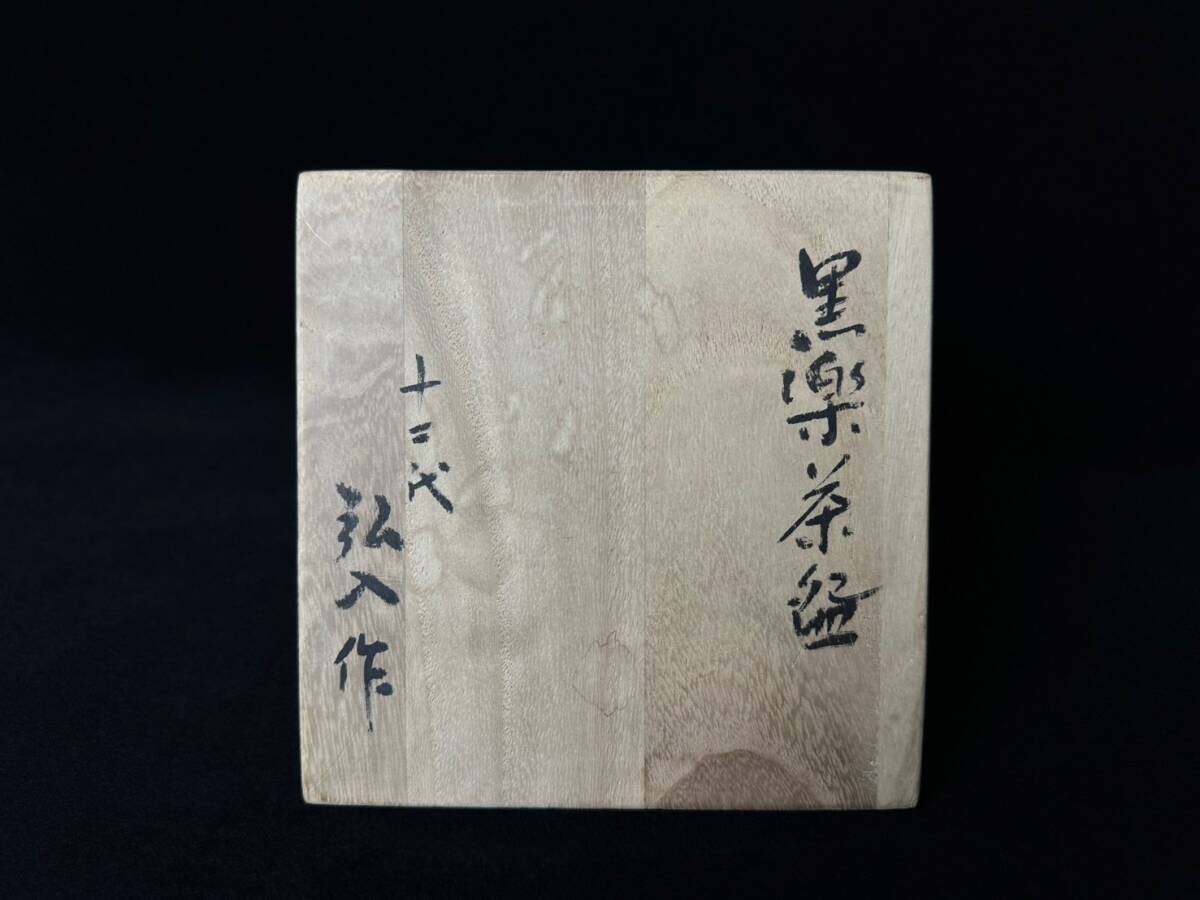 黒楽茶盌
十二代
弘入作